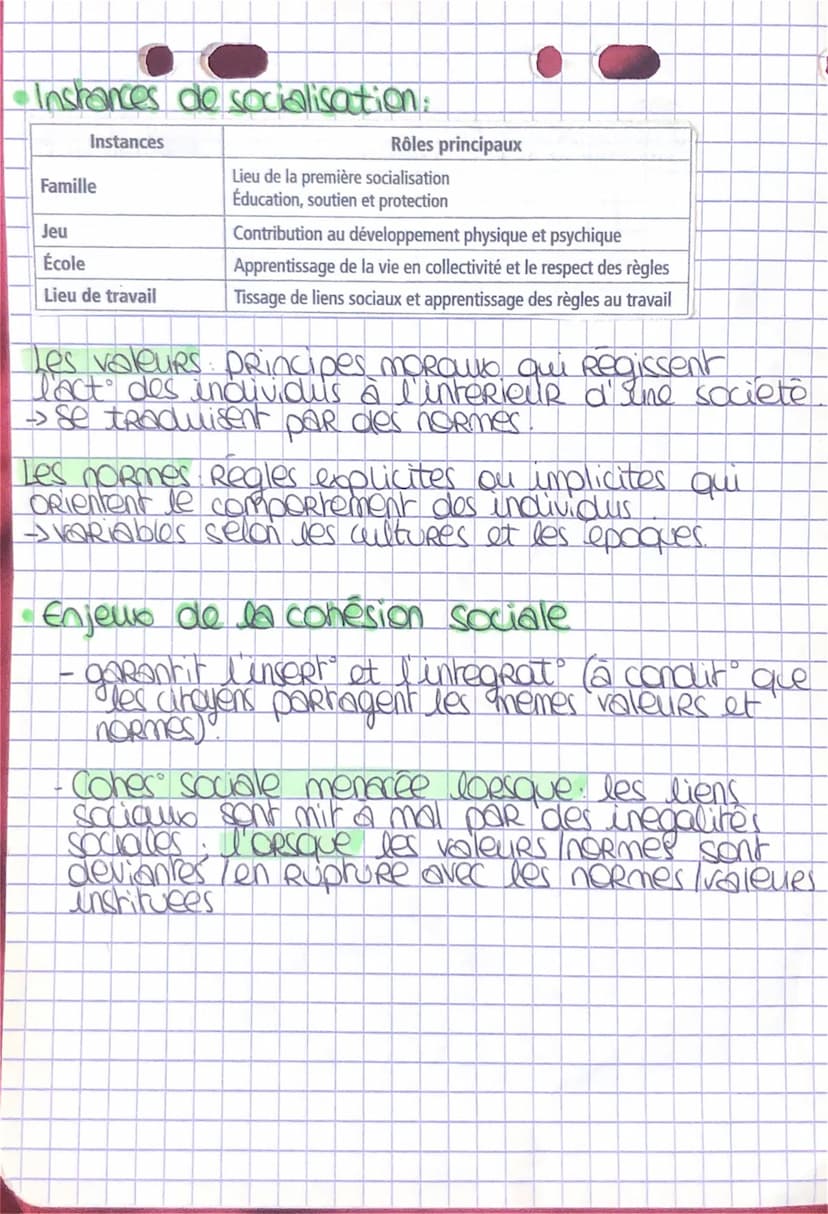 • Instances de socialisation :
Instances Rôles principaux
Famille Lieu de la première socialisation
Éducation, soutien et protection
Jeu Contribution au développement physique et psychique
École Apprentissage de la vie en collectivité et le respect des règles
Lieu de travail Tissage de liens sociaux et apprentissage des règles au travail
Les valeurs : principes moraux qui régissent
l'act° des individus à l'intérieur d'une société.
→ se traduisent par des normes.
Les normes : Règles explicites ou implicites qui
orientent le comportement des individus.
→ variables selon les cultures et les époques.
• Enjeux de la cohésion sociale
- garantir l'insert° et l'intégrat° (à condit° que
les citoyens partagent les mêmes valeurs et
normes).
- Cohés° sociale menacée lorsque : les liens
sociaux sont mit à mal par des inégalités
sociales . l'orsque les valeurs/normes sont
déviantes / en rupture avec les normes / valeurs
instituées